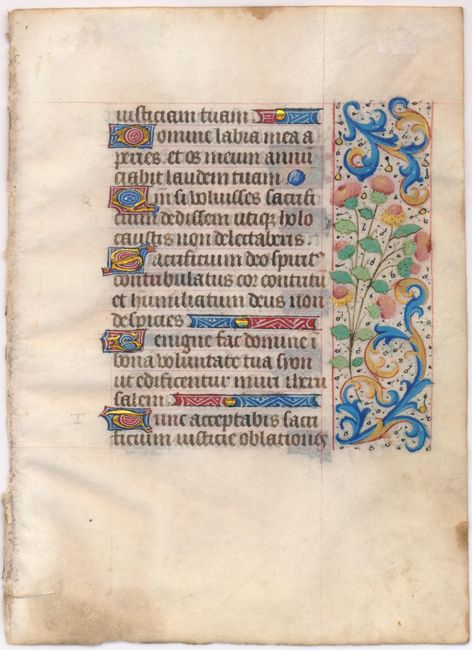 iusticiam tuam
Domine labia mea a
peries et os meum annu
ciabit laudem tuam
Qm si voluisses sacrifi
cium dedissem utiqz holo
caustis non delectaberis
Sacrificium deo spirit᷒
contribulatus cor contritũ
et humiliatum deus non
despicies
Benigne fac domine i
bona voluntate tua syon
ut edificentur muri iheru
salem
Tunc acceptabis sacri
ficium iusticie oblationes